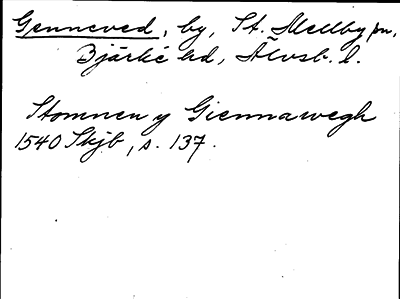 Genneved, by, St. Mellby sn,
Bjärke hd, Älvsb. l.
Stomnen y Giennawegh
1540 Skjb, s. 137.